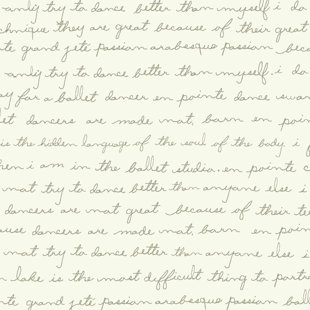 only try to dance better than myself. i do
technique they are great because of their great
nte grand jeté passion arabesque passion beca
only try to dance better than myself. i do
ay for a ballet dancer en pointe dance swan
let dancers are made not, born en poin
is the hidden language of the soul of the body i
hen i am in the ballet studio. en pointe c
not try to dance better than anyone else i
dancers are not great because of their te
ause dancers are made not, born en poin
not try to dance better than anyone else i
n lake is the most difficult thing to portra
nte grand jeté passion arabesque passion ball